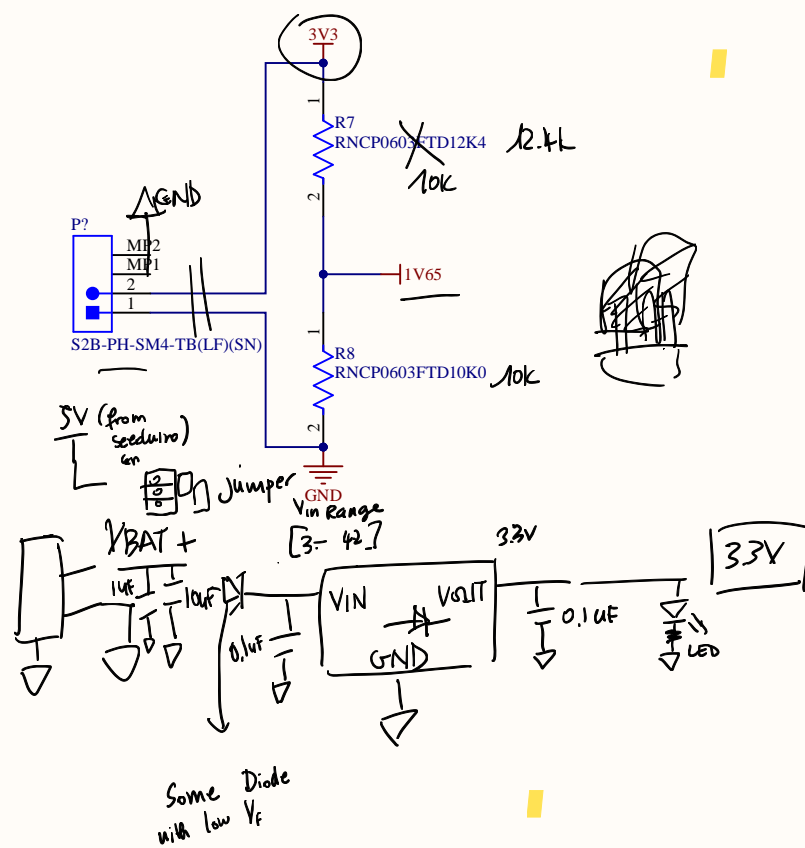 3V3
1
R7
RNCP0603FTD12K4
12.4k
10K
2
GND
P?
MP2
MP1
2
1
1V65
S2B-PH-SM4-TB(LF)(SN)
1
R8
RNCP0603FTD10K0
10k
2
GND
5V (from
seeeduino)
jumper
Vin Range
[3- 42]
VBAT +
3.3V
3.3V
1uF
10uF
VIN
VOUT
0.1uF
GND
0.1uF
LED
Some Diode
with low VF